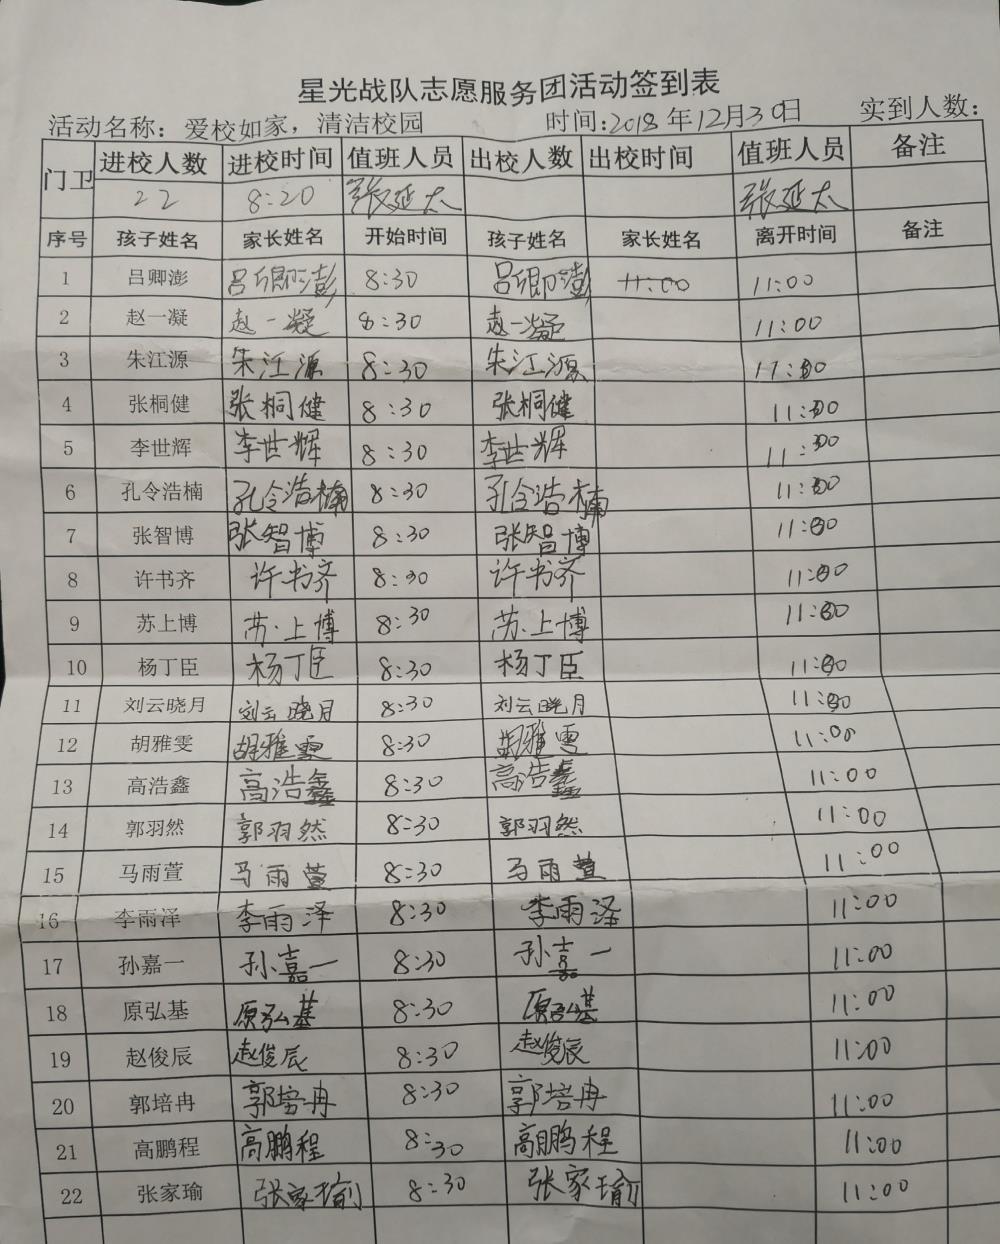 星光战队志愿服务团活动签到表
活动名称：爱校如家，清洁校园 时间:2018年12月30日 实到人数：
门卫 进校人数 进校时间 值班人员 出校人数 出校时间 值班人员 备注
22 8:20 张延太 张延太
序号 孩子姓名 家长姓名 开始时间 孩子姓名 家长姓名 离开时间 备注
1 吕卿澎 吕卿澎 8:30 吕卿澎 11:00 11:00
2 赵一凝 赵一凝 8:30 赵一凝 11:00
3 朱江源 朱江源 8:30 朱江源 11:00
4 张桐健 张桐健 8:30 张桐健 11:00
5 李世辉 李世辉 8:30 李世辉 11:00
6 孔令浩楠 孔令浩楠 8:30 孔令浩楠 11:00
7 张智博 张智博 8:30 张智博 11:00
8 许书齐 许书齐 8:30 许书齐 11:00
9 苏上博 苏上博 8:30 苏上博 11:00
10 杨丁臣 杨丁臣 8:30 杨丁臣 11:00
11 刘云晓月 刘云晓月 8:30 刘云晓月 11:00
12 胡雅雯 胡雅雯 8:30 胡雅雯 11:00
13 高浩鑫 高浩鑫 8:30 高浩鑫 11:00
14 郭羽然 郭羽然 8:30 郭羽然 11:00
15 马雨萱 马雨萱 8:30 马雨萱 11:00
16 李雨泽 李雨泽 8:30 李雨泽 11:00
17 孙嘉一 孙嘉一 8:30 孙嘉一 11:00
18 原弘基 原弘基 8:30 原弘基 11:00
19 赵俊辰 赵俊辰 8:30 赵俊辰 11:00
20 郭培冉 郭培冉 8:30 郭培冉 11:00
21 高鹏程 高鹏程 8:30 高鹏程 11:00
22 张家瑜 张家瑜 8:30 张家瑜 11:00